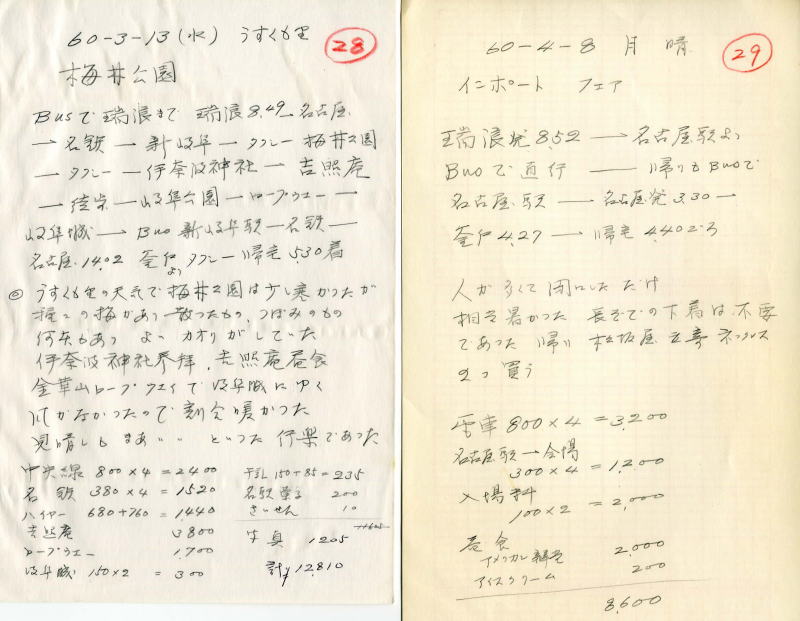 60-3-13(水) うすくもり
28
梅林公園
Busで瑞浪まで 瑞浪8.49→名古屋
→名鉄→新岐阜→タクシー梅林公園
→タクシー→伊奈波神社→吉照庵
→徒歩→岐阜公園→ロープウェー→
岐阜城→Bus新岐阜駅→名鉄→
名古屋14.02 釜戸よりタクシー帰宅5.30着
◎うすくもりの天気で梅林公園は少し寒かつたが
種々の梅があつて散つたもの、つぼみのもの
何本もあつて よいカオリがしていた
伊奈波神社参拝、吉照庵昼食
金華山ロープウェイで岐阜城にゆく
風がなかつたので割合暖かつた
見晴しも まあいい といつた行楽であつた
中央線 800×4 = 2400
名鉄 380×4 = 1520
ハイヤー 680+760 = 1440
吉照庵 3800
ロープウェー 1,700
岐阜城 150×2 = 300
150+85=235
名鉄菓子 200
さいせん 10
11605
写真 1205
計 12,810
60-4-8 月 晴
29
インポート フェア
瑞浪発8.52→名古屋駅より
Busで直行 → 帰りもBusで
名古屋駅→名古屋発3.30→
釜戸4.27→帰宅4.40ごろ
人が多くて閉口しただけ
相当暑かつた 長そでの下着は不要
であつた 帰り 松坂屋立寄 ネックレス
2つ買う
電車 800×4 = 3,200
名古屋駅→会場
300×4 = 1,200
入場料
100×2 = 2,000
昼食
アメリカン 2,000
アイスクリーム 200
8,600